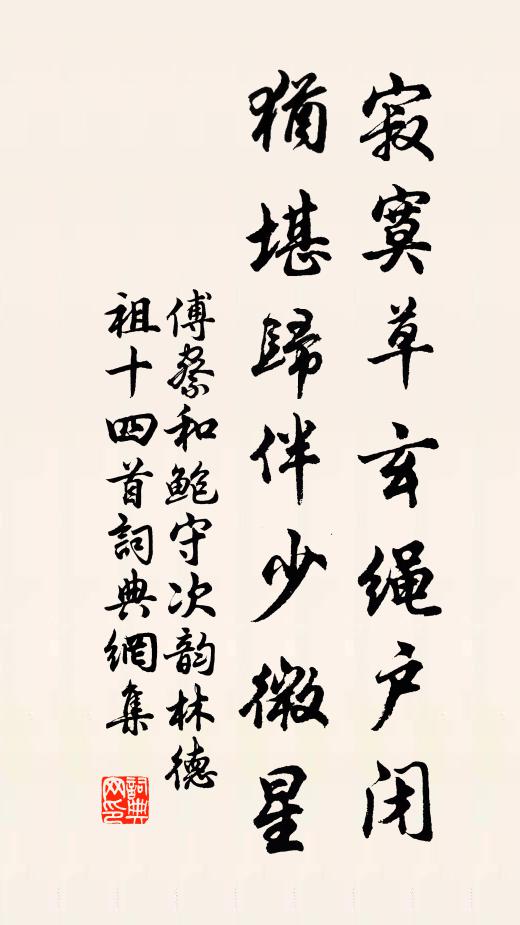 寂寞草玄绳户闭
猶堪歸伴少微星
傅察和鲍守次韵林德
祖十四首詞典網集
詞典
网印